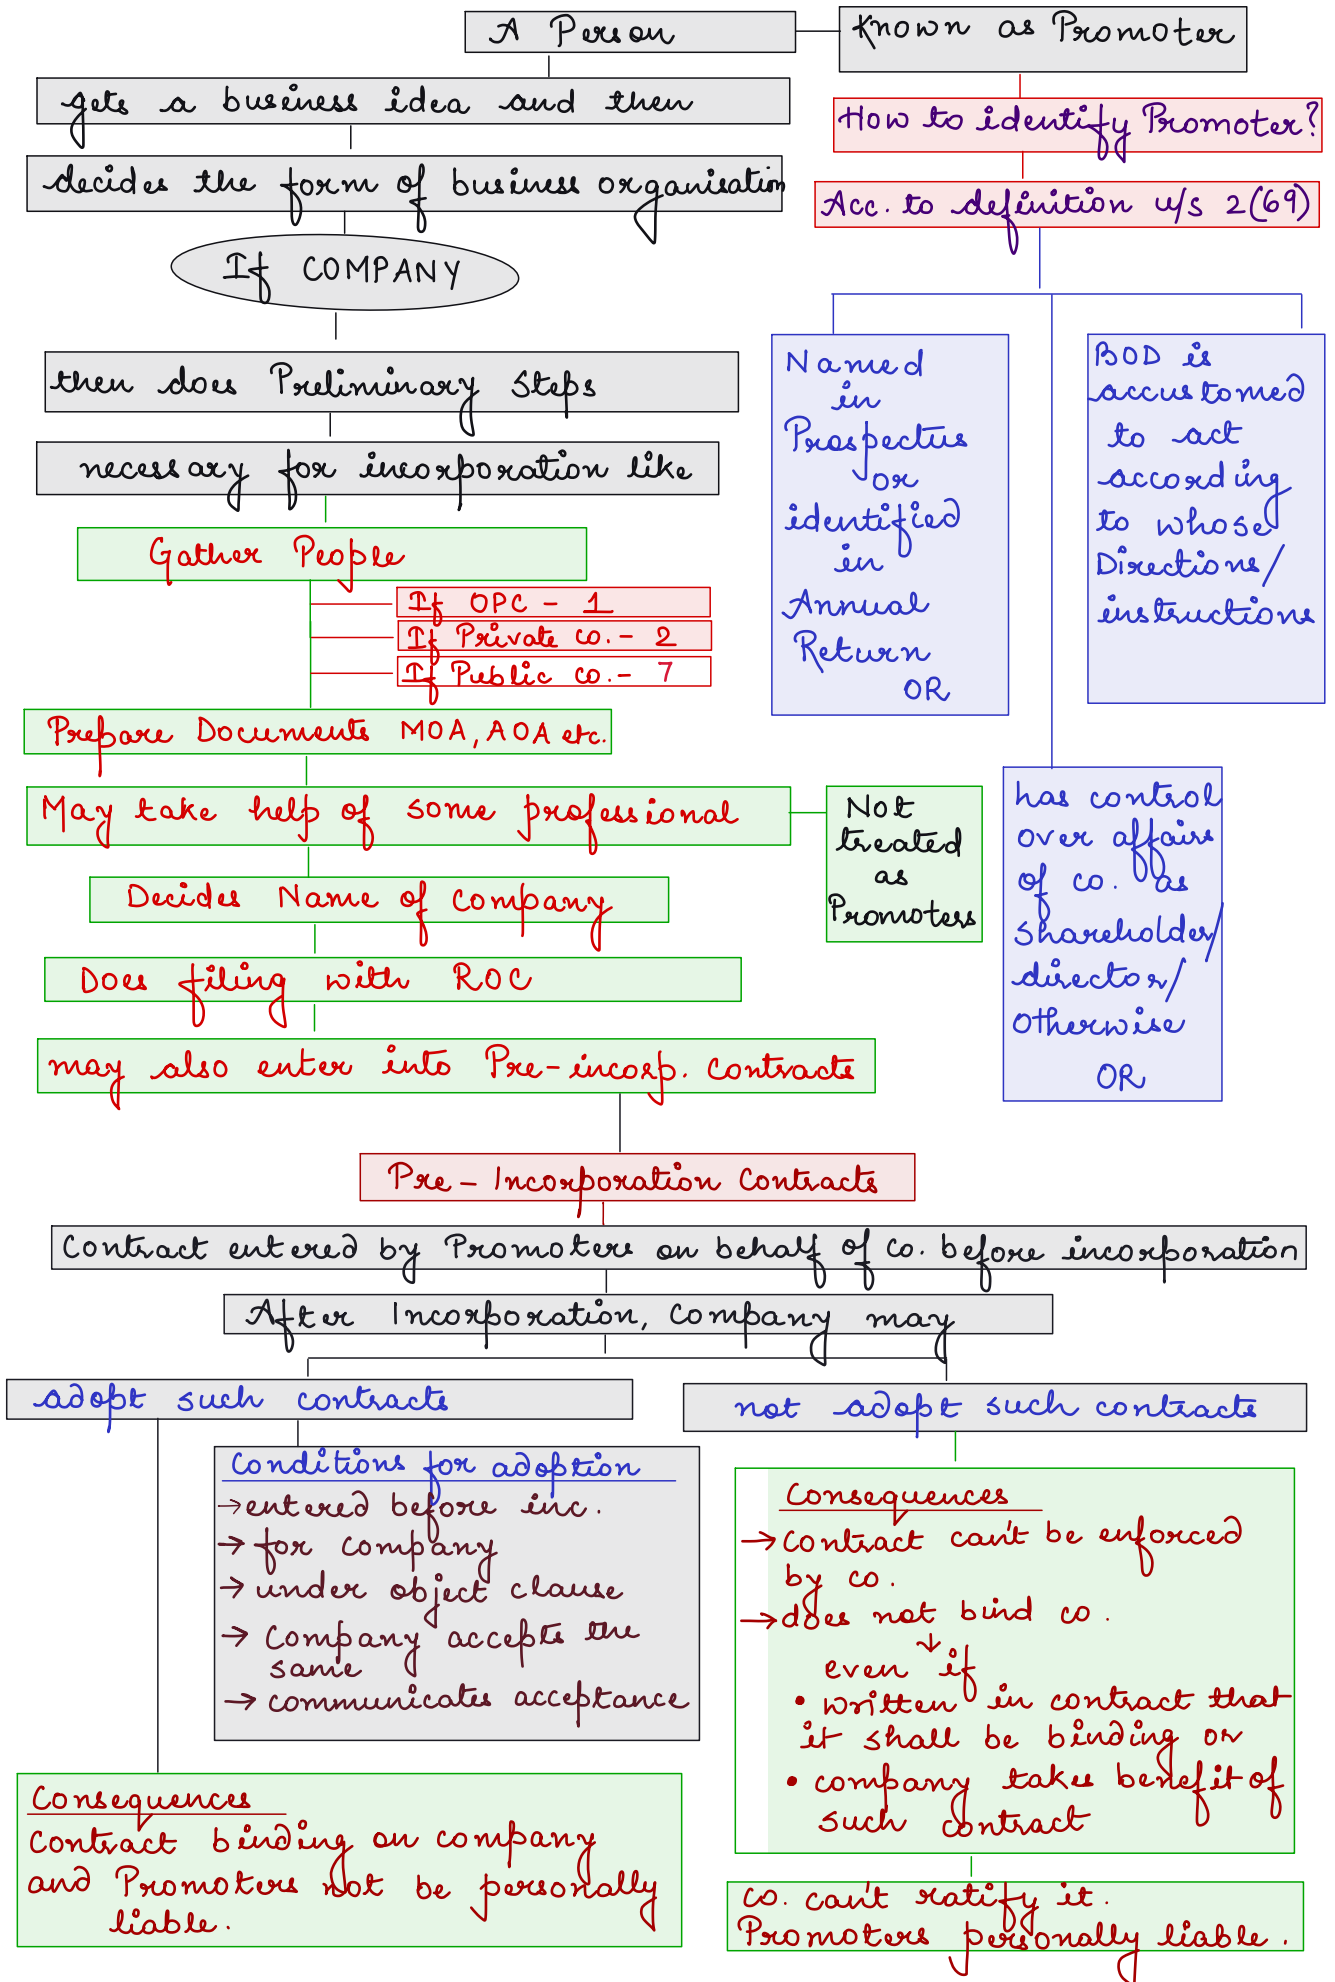 A Person
Known as Promoter
gets a business idea and then
decides the form of business organisation
If COMPANY
then does Preliminary Steps
necessary for incorporation like
Gather People
If OPC - 1
If Private co. - 2
If Public co. - 7
Prepare Documents MOA, AOA etc.
May take help of some professional
Not
treated
as
Promoters
Decides Name of company
Does filing with ROC
may also enter into Pre-incorp. Contracts
How to identify Promoter?
Acc. to definition u/s 2(69)
Named
in
Prospectus
or
identified
in
Annual
Return
OR
has control
over affairs
of co. as
shareholder/
director/
otherwise
OR
BOD is
accustomed
to act
according
to whose
Directions/
instructions
Pre - Incorporation Contracts
Contract entered by Promoters on behalf of co. before incorporation
After Incorporation, Company may
adopt such contracts
Conditions for adoption
→ entered before inc.
→ for company
→ under object clause
→ Company accepts the
same
→ communicates acceptance
Consequences
Contract binding on company
and Promoters not be personally
liable.
not adopt such contracts
Consequences
→ Contract can't be enforced
by co.
→ does not bind co.
↓
even if
• written in contract that
it shall be binding or
• company takes benefit of
such contract
co. can't ratify it.
Promoters personally liable.